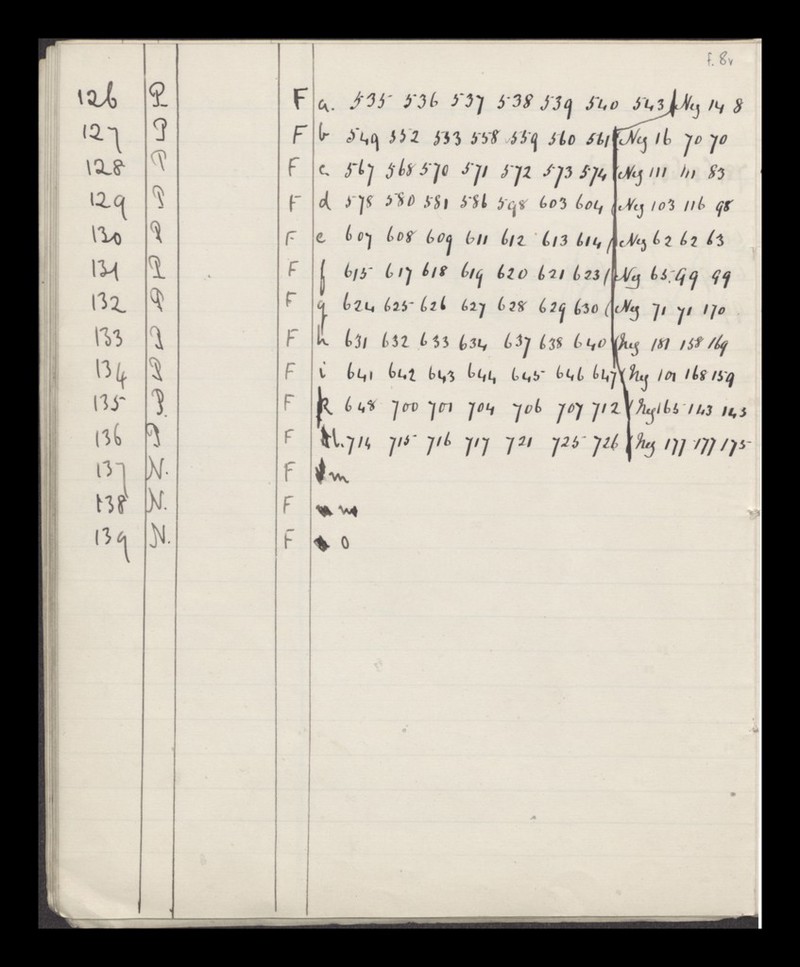 f. 8v
126 P F a. 535 536 537 538 539 540 543 Neg 14 8
127 P F b 549 552 533 558 559 560 561 Neg 16 70 70
128 P F c 567 568 570 571 572 573 574 Neg 111 111 83
129 P F d 578 580 581 586 598 603 604 Neg 103 116 98
130 P F e 607 608 609 611 612 613 614 Neg 62 62 63
131 P F f 615 617 618 619 620 621 623 Neg 65 99 99
132 P F g 624 625 626 627 628 629 630 Neg 71 71 170
133 P F h 631 632 633 634 637 638 640 Neg 181 158 169
134 P F i 641 642 643 644 645 646 647 Neg 101 168 159
135 P. F k 648 700 701 704 706 707 712 Neg 165 143 143
136 P F l. 714 715 716 717 721 725 726 Neg 177 177 175
137 N. F m
138 N. F
139 N. F o